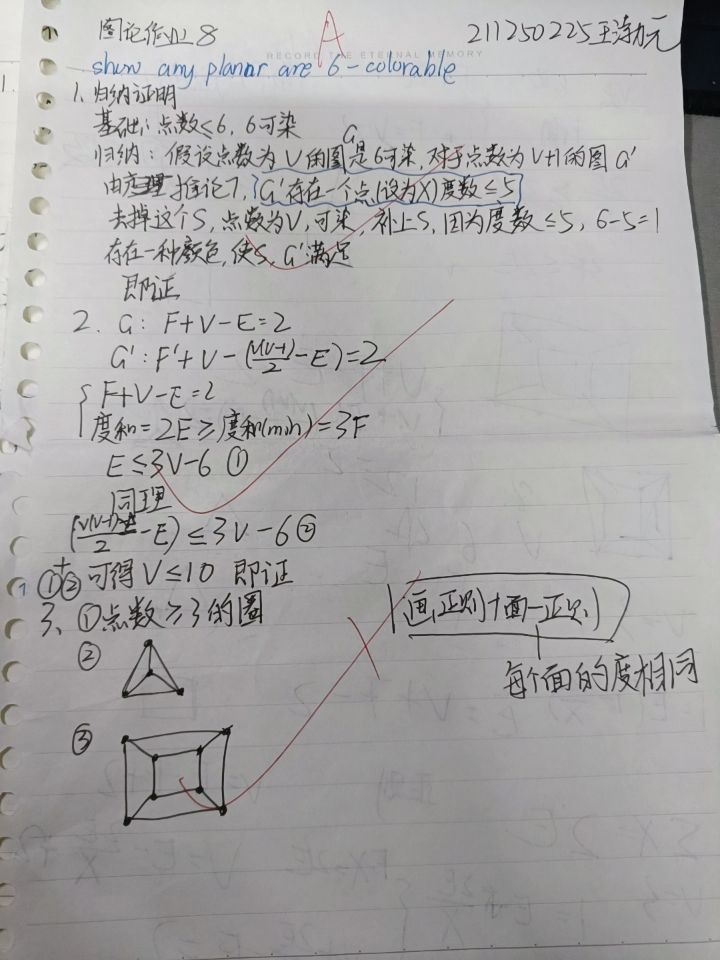 图论作业8
A
211250225王
RECORD THE ETERNAL MEMORY
show any planar are 6-colorable
1、归纳证明
基础: 点数≤6, 6可染
归纳: 假设点数为V的图G是6可染, 对于点数为V+1的图G'
由推论7, G'存在一个点(设为X)度数≤5
去掉这个S, 点数为V, 可染, 补上S, 因为度数≤5, 6-5=1
存在一种颜色, 使S, G'满足
即证
2. G: F+V-E=2
G': F'+V-(V(V-1)/2-E)=2
{F+V-E=2
度和=2E≥度和(min)=3F
E≤3V-6 ①
同理
(V(V-1)/2-E)≤3V-6②
①+② 可得V≤10 即证
3、①点数≥3的圈
画正则+面一正则
每个面的度相同
②
③